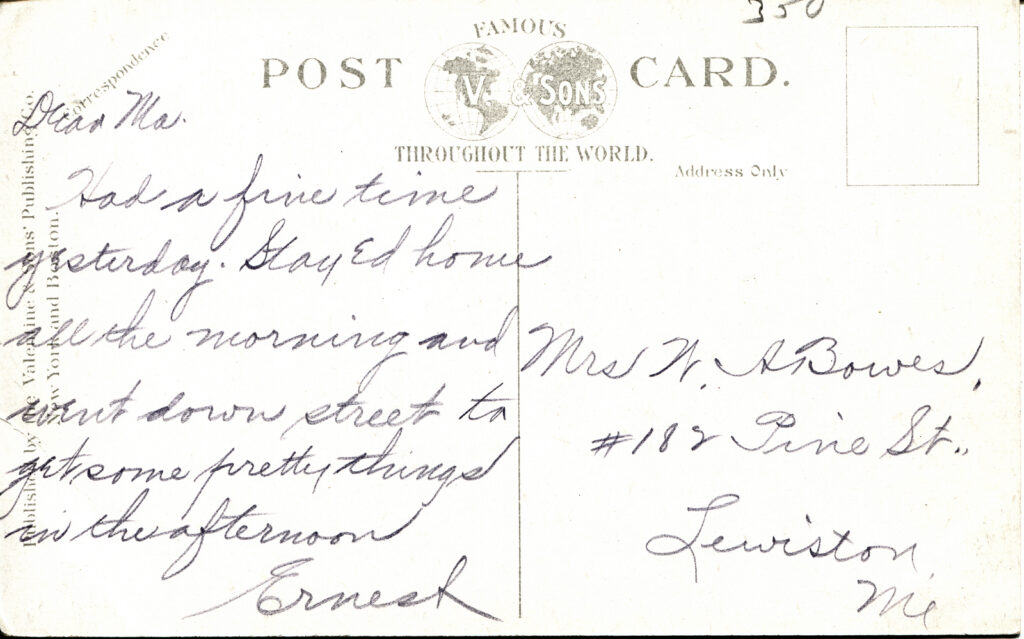 350
FAMOUS
POST CARD.
V. & SONS
THROUGHOUT THE WORLD.
Correspondence
Address Only
Published by The Valentine & Sons' Publishing Co.
New York and Boston.
Dear Ma.
Had a fine time
yesterday. StayEd home
all the morning and
went down street to
get some pretty things
in the afternoon
Ernest
Mrs W. A Bowes,
#182 Pine St.,
Lewiston
Me